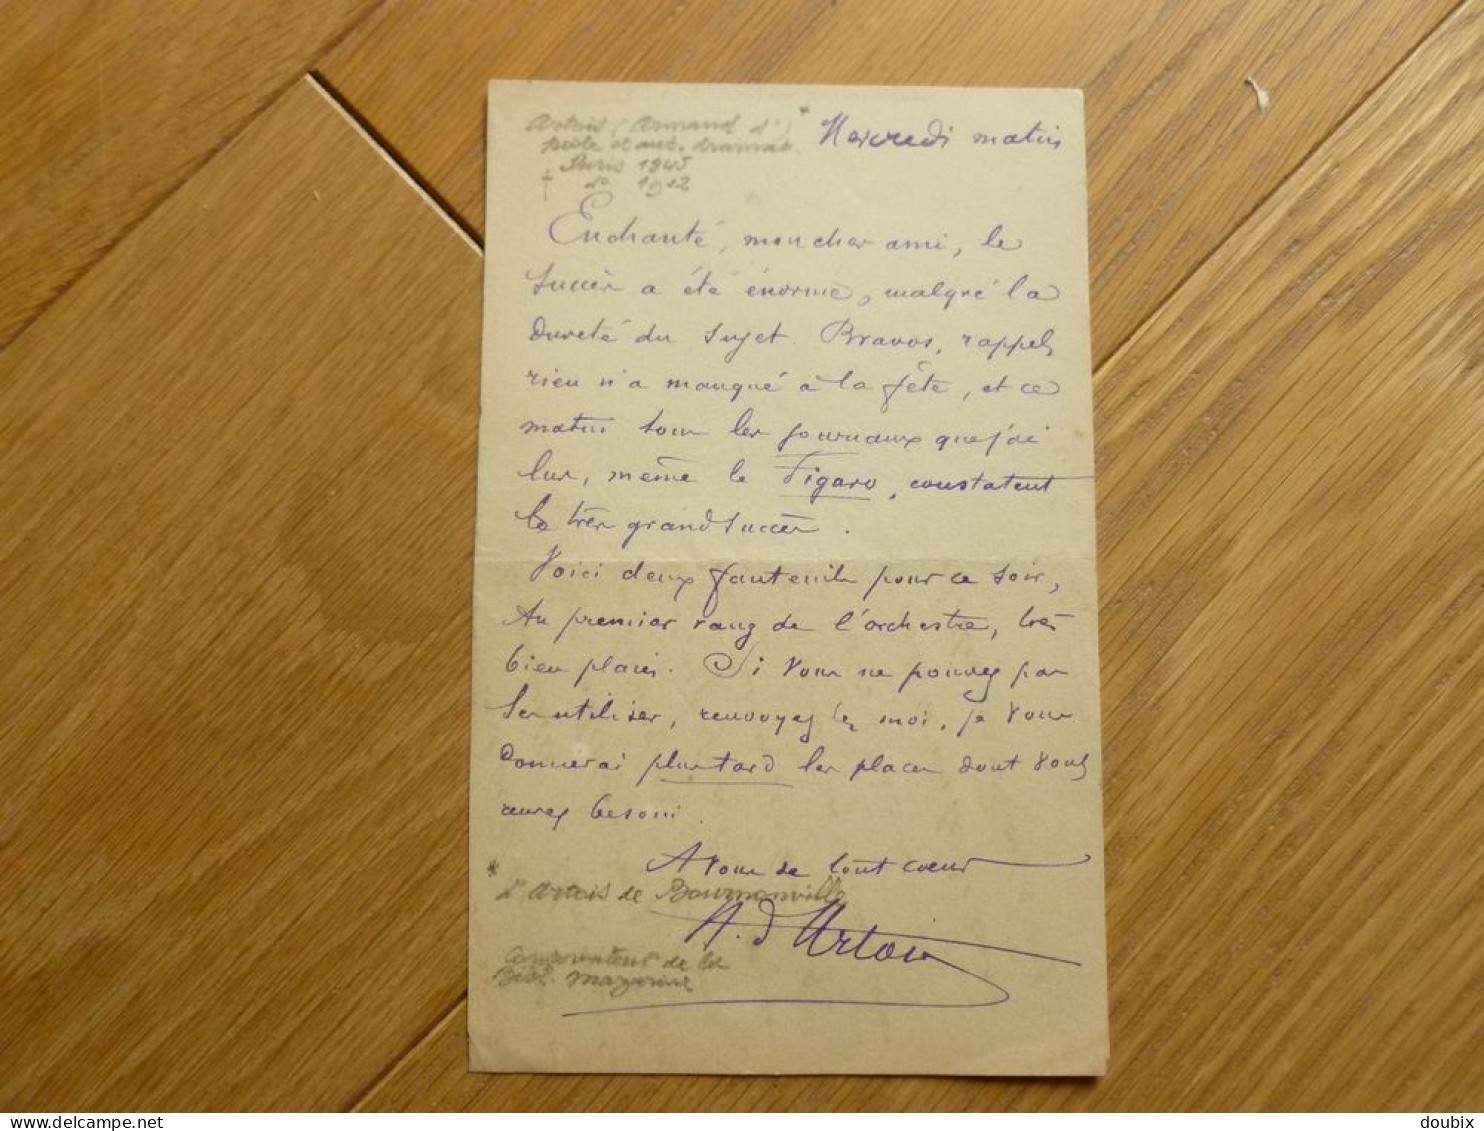 Artois (Armand d') *
poète et aut. dramat.
Paris 1845
† do 1912
Mercredi matin
Enchanté, mon cher ami, le
succès a été énorme, malgré la
dureté du sujet. Bravos, rappels
rien n'a manqué à la fête, et ce
matin tous les journaux que j'ai
lus, même le Figaro, constatent
le très grand succès.
Voici deux fauteuils pour ce soir,
au premier rang de l'orchestre, très
bien placés. Si vous ne pouvez pas
les utiliser, renvoyez les moi, je vous
donnerai plus tard les places dont vous
aurez besoin.
A vous de tout coeur
* d'Artois de Bournonville
A. d'Artois
Conservateur de la
Bibl. Mazarine
delcampe.net
doubix